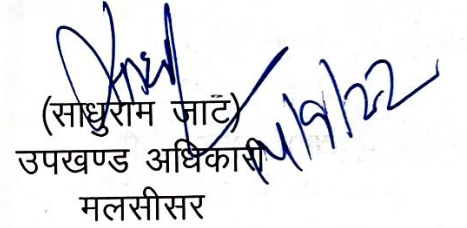 (साधुराम जाट)
उपखण्ड अधिकारी
मलसीसर